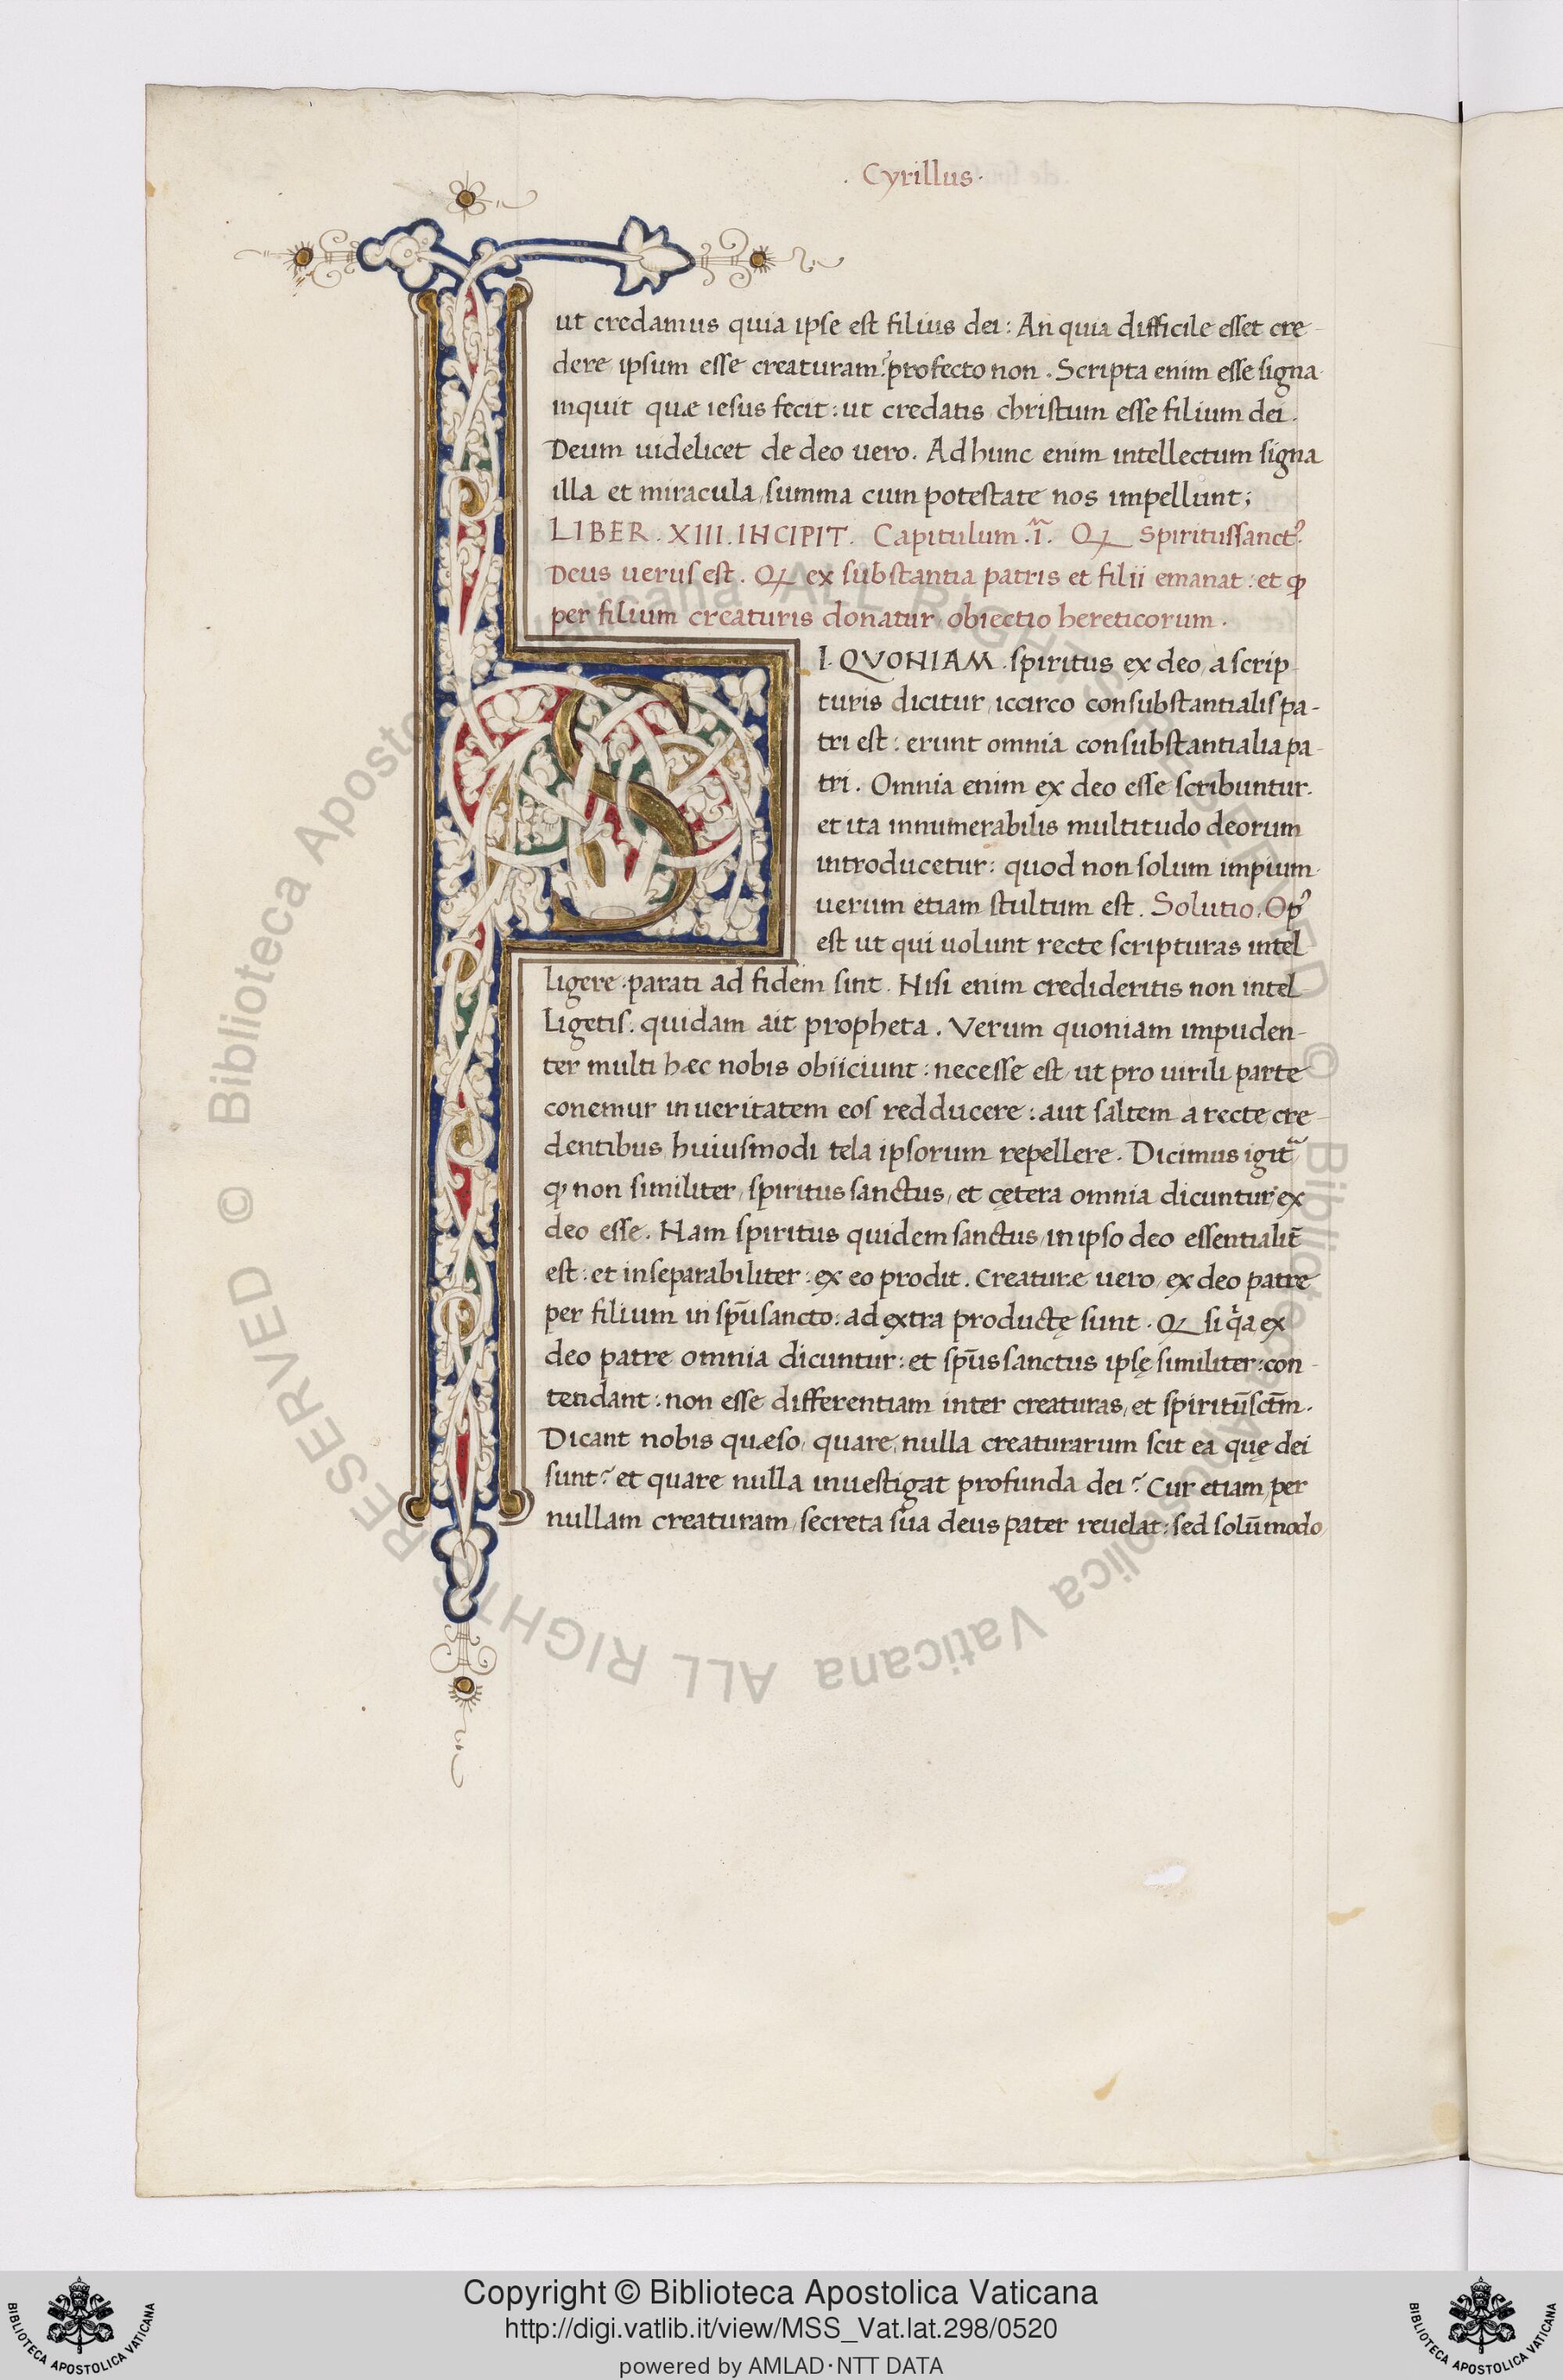 . Cyrillus .
ut credamus quia ipse est filius dei : An quia difficile esset cre-
dere ipsum esse creaturam? profecto non . Scripta enim esse signa
inquit quæ iesus fecit : ut credatis christum esse filium dei .
Deum uidelicet de deo uero . Ad hunc enim intellectum signa
illa et miracula, summa cum potestate nos impellunt ;
LIBER . XIII . INCIPIT . Capitulum . i̅ . Qꝫ Spiritussanctꝰ
Deus uerus est . Qꝫ ex substantia patris et filii emanat : et ꝙ
per filium creaturis donatur, obiectio hereticorum .
SI . QVONIAM . spiritus ex deo, a scrip-
turis dicitur, iccirco consubstantialis pa-
tri est : erunt omnia consubstantialia pa-
tri . Omnia enim ex deo esse scribuntur .
et ita innumerabilis multitudo deorum
introducetur : quod non solum impium
uerum etiam stultum est . Solutio . Opꝰ
est ut qui uolunt recte scripturas intel
ligere . parati ad fidem sint . Nisi enim credideritis non intel
ligetis . quidam ait propheta . Verum quoniam impuden-
ter multi hæc nobis obiiciunt : necesse est, ut pro uirili parte
conemur in ueritatem eos redducere : aut saltem a recte cre-
dentibus, huiusmodi tela ipsorum repellere . Dicimus igit᷑
ꝙ non similiter, spiritus sanctus, et cętera omnia dicuntur, ex
deo esse . Nam spiritus quidem sanctus, in ipso deo essentialit̃
est : et inseparabiliter : ex eo prodit . Creaturæ uero, ex deo patre
per filium in sp̅u sancto : ad extra productę sunt . Qꝫ si q̓a ex
deo patre omnia dicuntur : et sp̅us sanctus ipsę similiter : con-
tendant : non esse differentiam inter creaturas, et spiritu̅ sct̅m .
Dicant nobis quæso, quare, nulla creaturarum scit ea quę dei
sunt? et quare nulla inuestigat profunda dei? Cur etiam, per
nullam creaturam, secreta sua deus pater reuelat : sed solu̅modo
© Biblioteca Apostolica Vaticana ALL RIGHTS RESERVED © Biblioteca Apostolica Vaticana ALL RIGHTS RESERVED
Copyright © Biblioteca Apostolica Vaticana
http://digi.vatlib.it/view/MSS_Vat.lat.298/0520
powered by AMLAD·NTT DATA
BIBLIOTECA APOSTOLICA VATICANA
BIBLIOTECA APOSTOLICA VATICANA